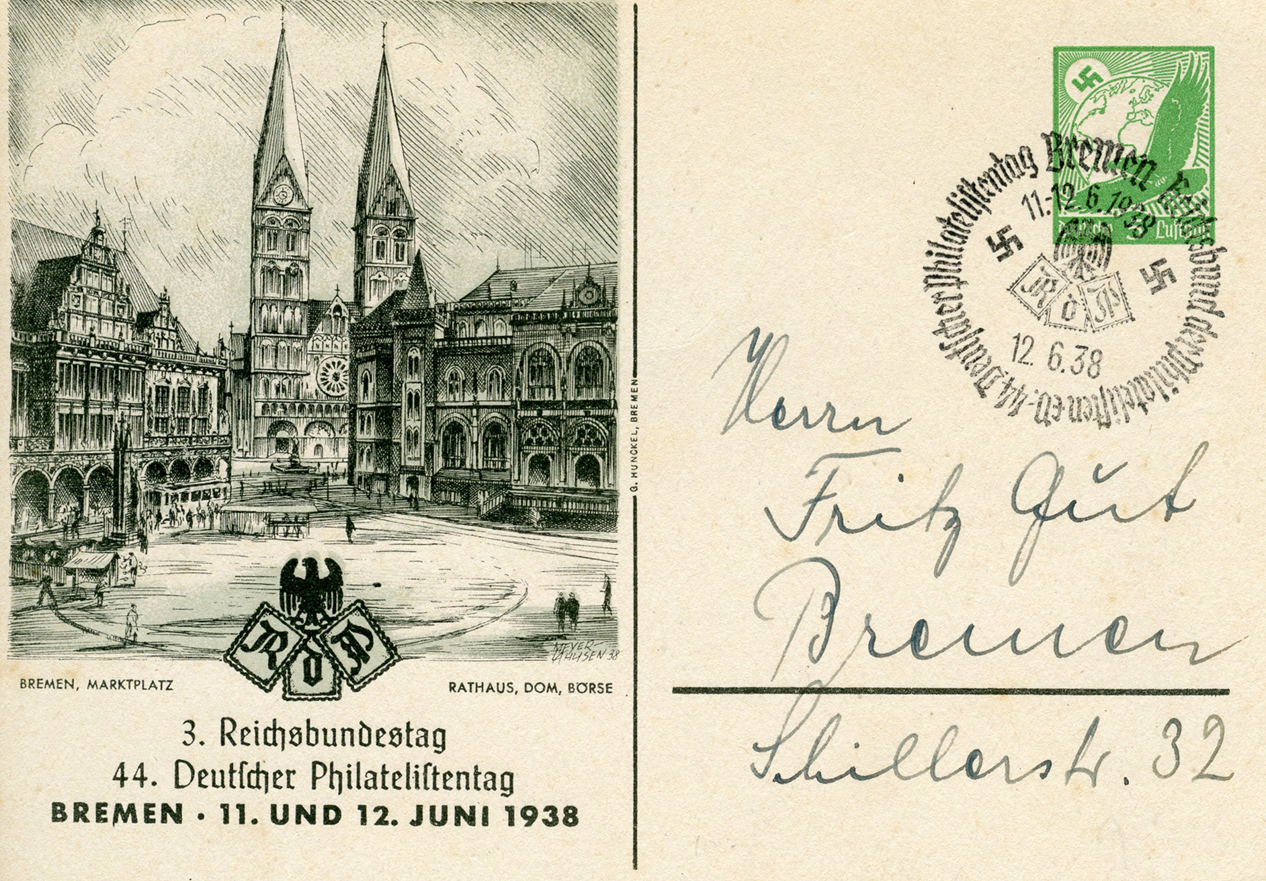 MEYER-
38
R d P
BREMEN, MARKTPLATZ
RATHAUS, DOM, BÖRSE
3. Reichsbundestag
44. Deutſcher Philateliſtentag
BREMEN · 11. UND 12. JUNI 1938
G. HUNCKEL, BREMEN
Luftpost
44. Deutſcher Philateliſtentag Bremen Reichsbund der Philateliſten e.V.
11.-12.6.1938
R d P
12.6.38
Herrn
Fritz Gut
Bremen
Schillerstr. 32